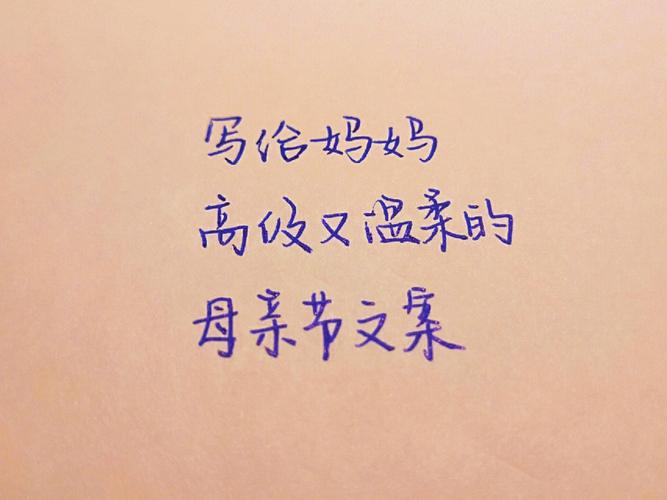 写给妈妈
高级又温柔的
母亲节文案